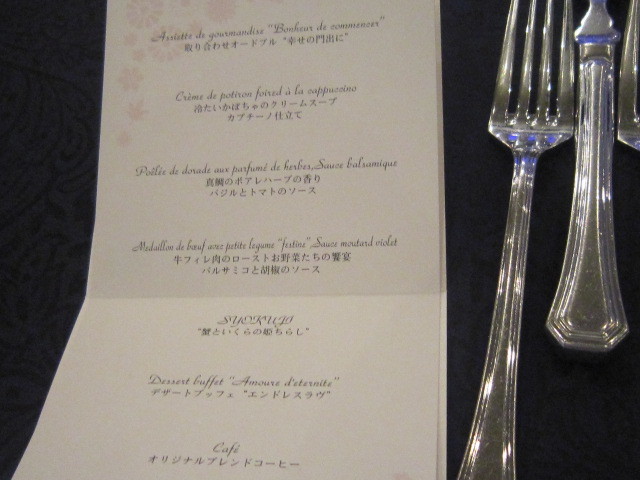 Assiette de gourmandise "Bonheur de commencer"
取り合わせオードブル "幸せの門出に"
Crème de potiron foired à la cappuccino
冷たいかぼちゃのクリームスープ
カプチーノ仕立て
Poêlée de dorade aux parfumé de herbes,Sauce balsamique
真鯛のポアレハーブの香り
バジルとトマトのソース
Medaillon de bœuf avez petite legume "festine",Sauce moutard violet
牛フィレ肉のローストお野菜たちの饗宴
バルサミコと胡椒のソース
SYOKUJI
"蟹といくらの姫ちらし"
Dessert buffet "Amoure d'eternite"
デザートブッフェ "エンドレスラヴ"
Café
オリジナルブレンドコーヒー